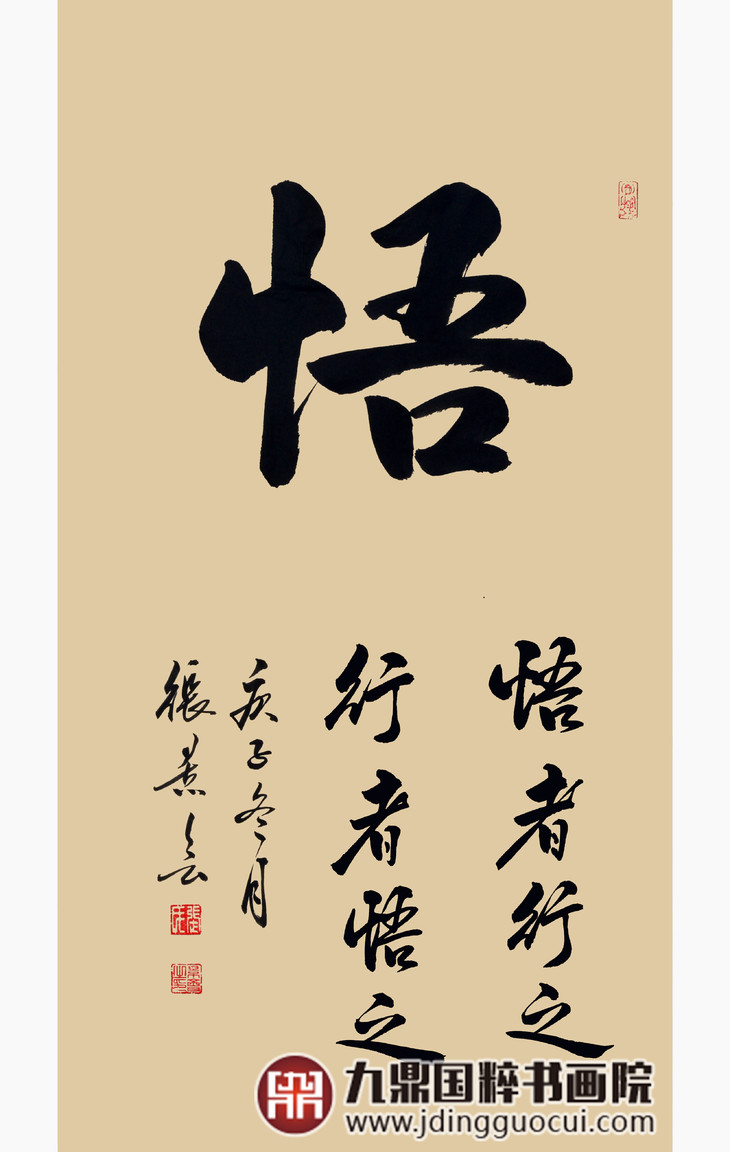 悟
悟者行之
行者悟之
庚子冬月
張景云
九鼎国粹书画院
www.jdingguocui.com